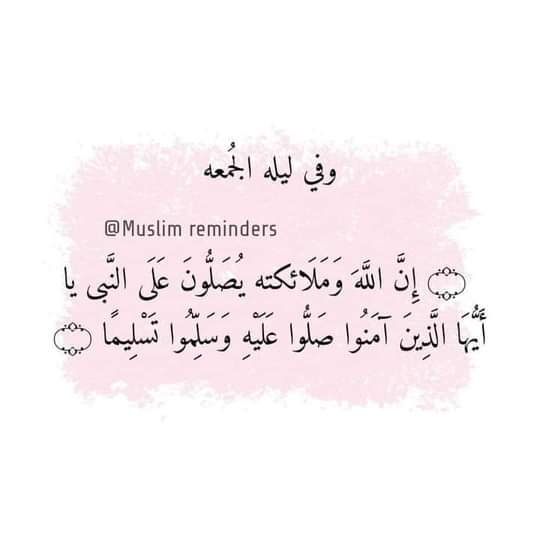 وفي ليله الجُمعه
@Muslim reminders
۝ إِنَّ اللَّهَ وَمَلَائكته يُصَلُّونَ عَلَى النَّبى يا
أَيُّهَا الَّذِينَ آمَنُوا صَلُّوا عَلَيْهِ وَسَلِّمُوا تَسْلِيمًا ۝